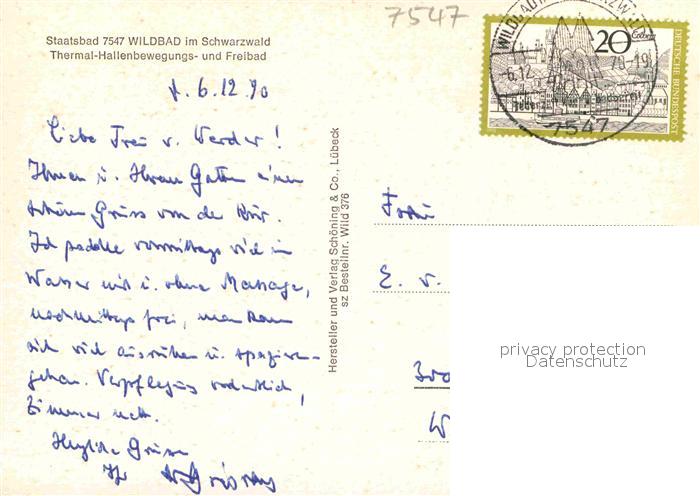 7547
Staatsbad 7547 WILDBAD im Schwarzwald
Thermal-Hallenbewegungs- und Freibad
6.12.70
Liebe Frau v. Werder!
Ihnen u. Ihrem Gatten einen
schönen Gruss von der Kur.
Ich paddle vormittags viel im
Wasser mit u. ohne Massage,
nachmittags frei, man kann
sich viel ausruhen u. spazieren-
gehen. Verpflegung vorderhand,
Zimmer nett.
Herzliche Grüsse
Ihr
Hersteller und Verlag Schöning & Co., Lübeck
sz Bestellnr. Wild 376
WILDBAD
6.12.70-19
7547
Cochem
20
DEUTSCHE BUNDESPOST
Frau
E. v.
300
W
privacy protection
Datenschutz